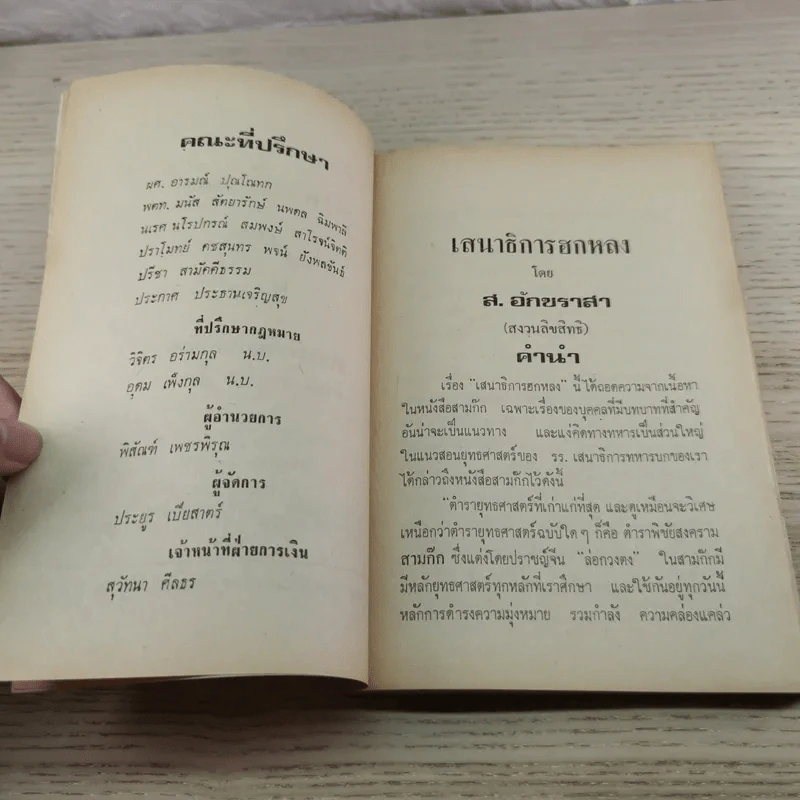 คณะที่ปรึกษา
ผศ. อารมณ์ ปุณโณทก
พตท. มนัส สัตยารักษ์ นพดล ฉิมพาลี
นเรศ นโรปกรณ์ สมพงษ์ สาโรจน์จิตติ
ปราโมทย์ คชสุนทร พจน์ ยังพลขันธ์
ปรีชา สามัคคีธรรม
ประกาศ ประธานเจริญสุข
ที่ปรึกษากฎหมาย
วิจิตร อร่ามกุล น.บ.
อุดม เพ็งกุล น.บ.
ผู้อำนวยการ
พิสัณฑ์ เพชรพิรุณ
ผู้จัดการ
ประยูร เบี้ยสาตร์
เจ้าหน้าที่ฝ่ายการเงิน
สุวัทนา ศีลธร
เสนาธิการฮกหลง
โดย
ส. อักขราสา
(สงวนลิขสิทธิ์)
คำนำ
เรื่อง "เสนาธิการฮกหลง" นี้ ได้ถอดความจากเนื้อหา
ในหนังสือสามก๊ก เฉพาะเรื่องของบุคคลที่มีบทบาทที่สำคัญ
อันน่าจะเป็นแนวทาง และแง่คิดทางทหารเป็นส่วนใหญ่
ในแนวสอนยุทธศาสตร์ของ รร. เสนาธิการทหารบกของเรา
ได้กล่าวถึงหนังสือสามก๊กไว้ดังนี้
"ตำรายุทธศาสตร์ที่เก่าแก่ที่สุด และดูเหมือนจะวิเศษ
เหนือกว่าตำรายุทธศาสตร์ฉบับใด ๆ ก็คือ ตำราพิชัยสงคราม
สามก๊ก ซึ่งแต่งโดยปราชญ์จีน "ล่อกวงตง" ในสามก๊กมี
มีหลักยุทธศาสตร์ทุกหลักที่เราศึกษา และใช้กันอยู่ทุกวันนี้
หลักการดำรงความมุ่งหมาย รวมกำลัง ความคล่องแคล่ว